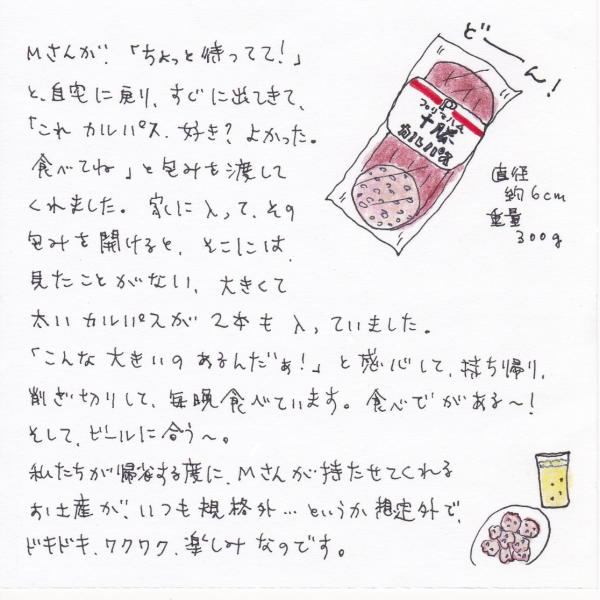 Mさんが、「ちょっと待ってて!」
と、自宅に戻り、すぐに出てきて、
「これ カルパス、好き? よかった。
食べてね」と包みを渡して
くれました。家に入って、その
包みを開けると、そこには、
見たことがない、大きくて
太いカルパスが2本も入っていました。
「こんな大きいのあるんだぁ!」と感心して、持ち帰り、
削ぎ切りして、毎晩食べています。食べでがある〜!
そして、ビールに合う〜。
私たちが帰省する度に、Mさんが持たせてくれる
お土産が、いつも規格外…というか、想定外で、
ドキドキ、ワクワク、楽しみなのです。
どーん!
プリマハム
十勝
カルパス
直径
約6cm
重量
300g